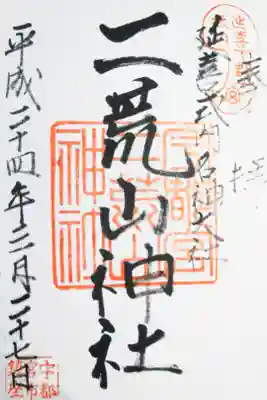 奉拝
延喜式内名神大社
二荒山神社
宇都宮
二荒山
神社
平成二十四年十二月二十七日
宇都
宮市
鎮座